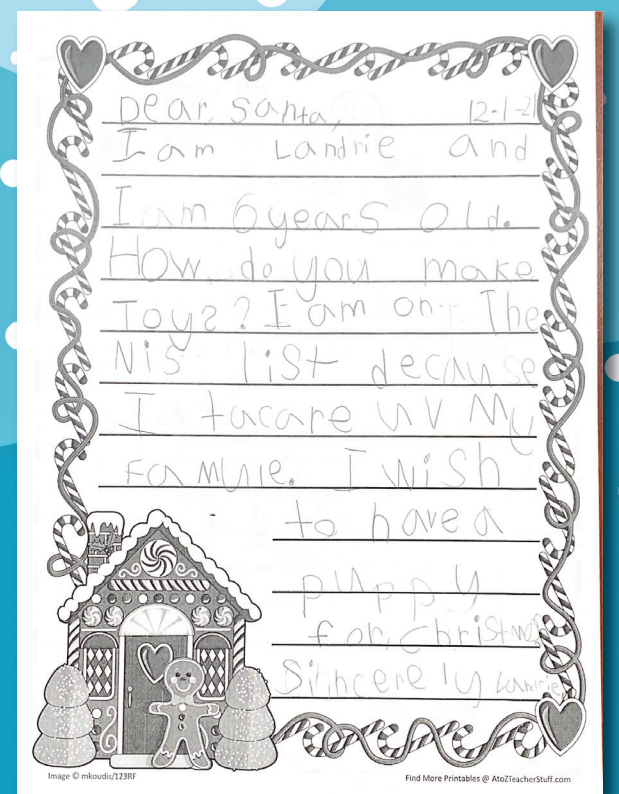 Dear, Santa, 12-1-21
I am Landrie and
I am 6 years old.
How do you make
Toys? I am on The
Nis list decause
I tacare uv My
Famulie. I wish
to have a
puppy
for, Christmas
Sinncerely Landrie
Image © mkoudis/123RF
Find More Printables @ AtoZTeacherStuff.com